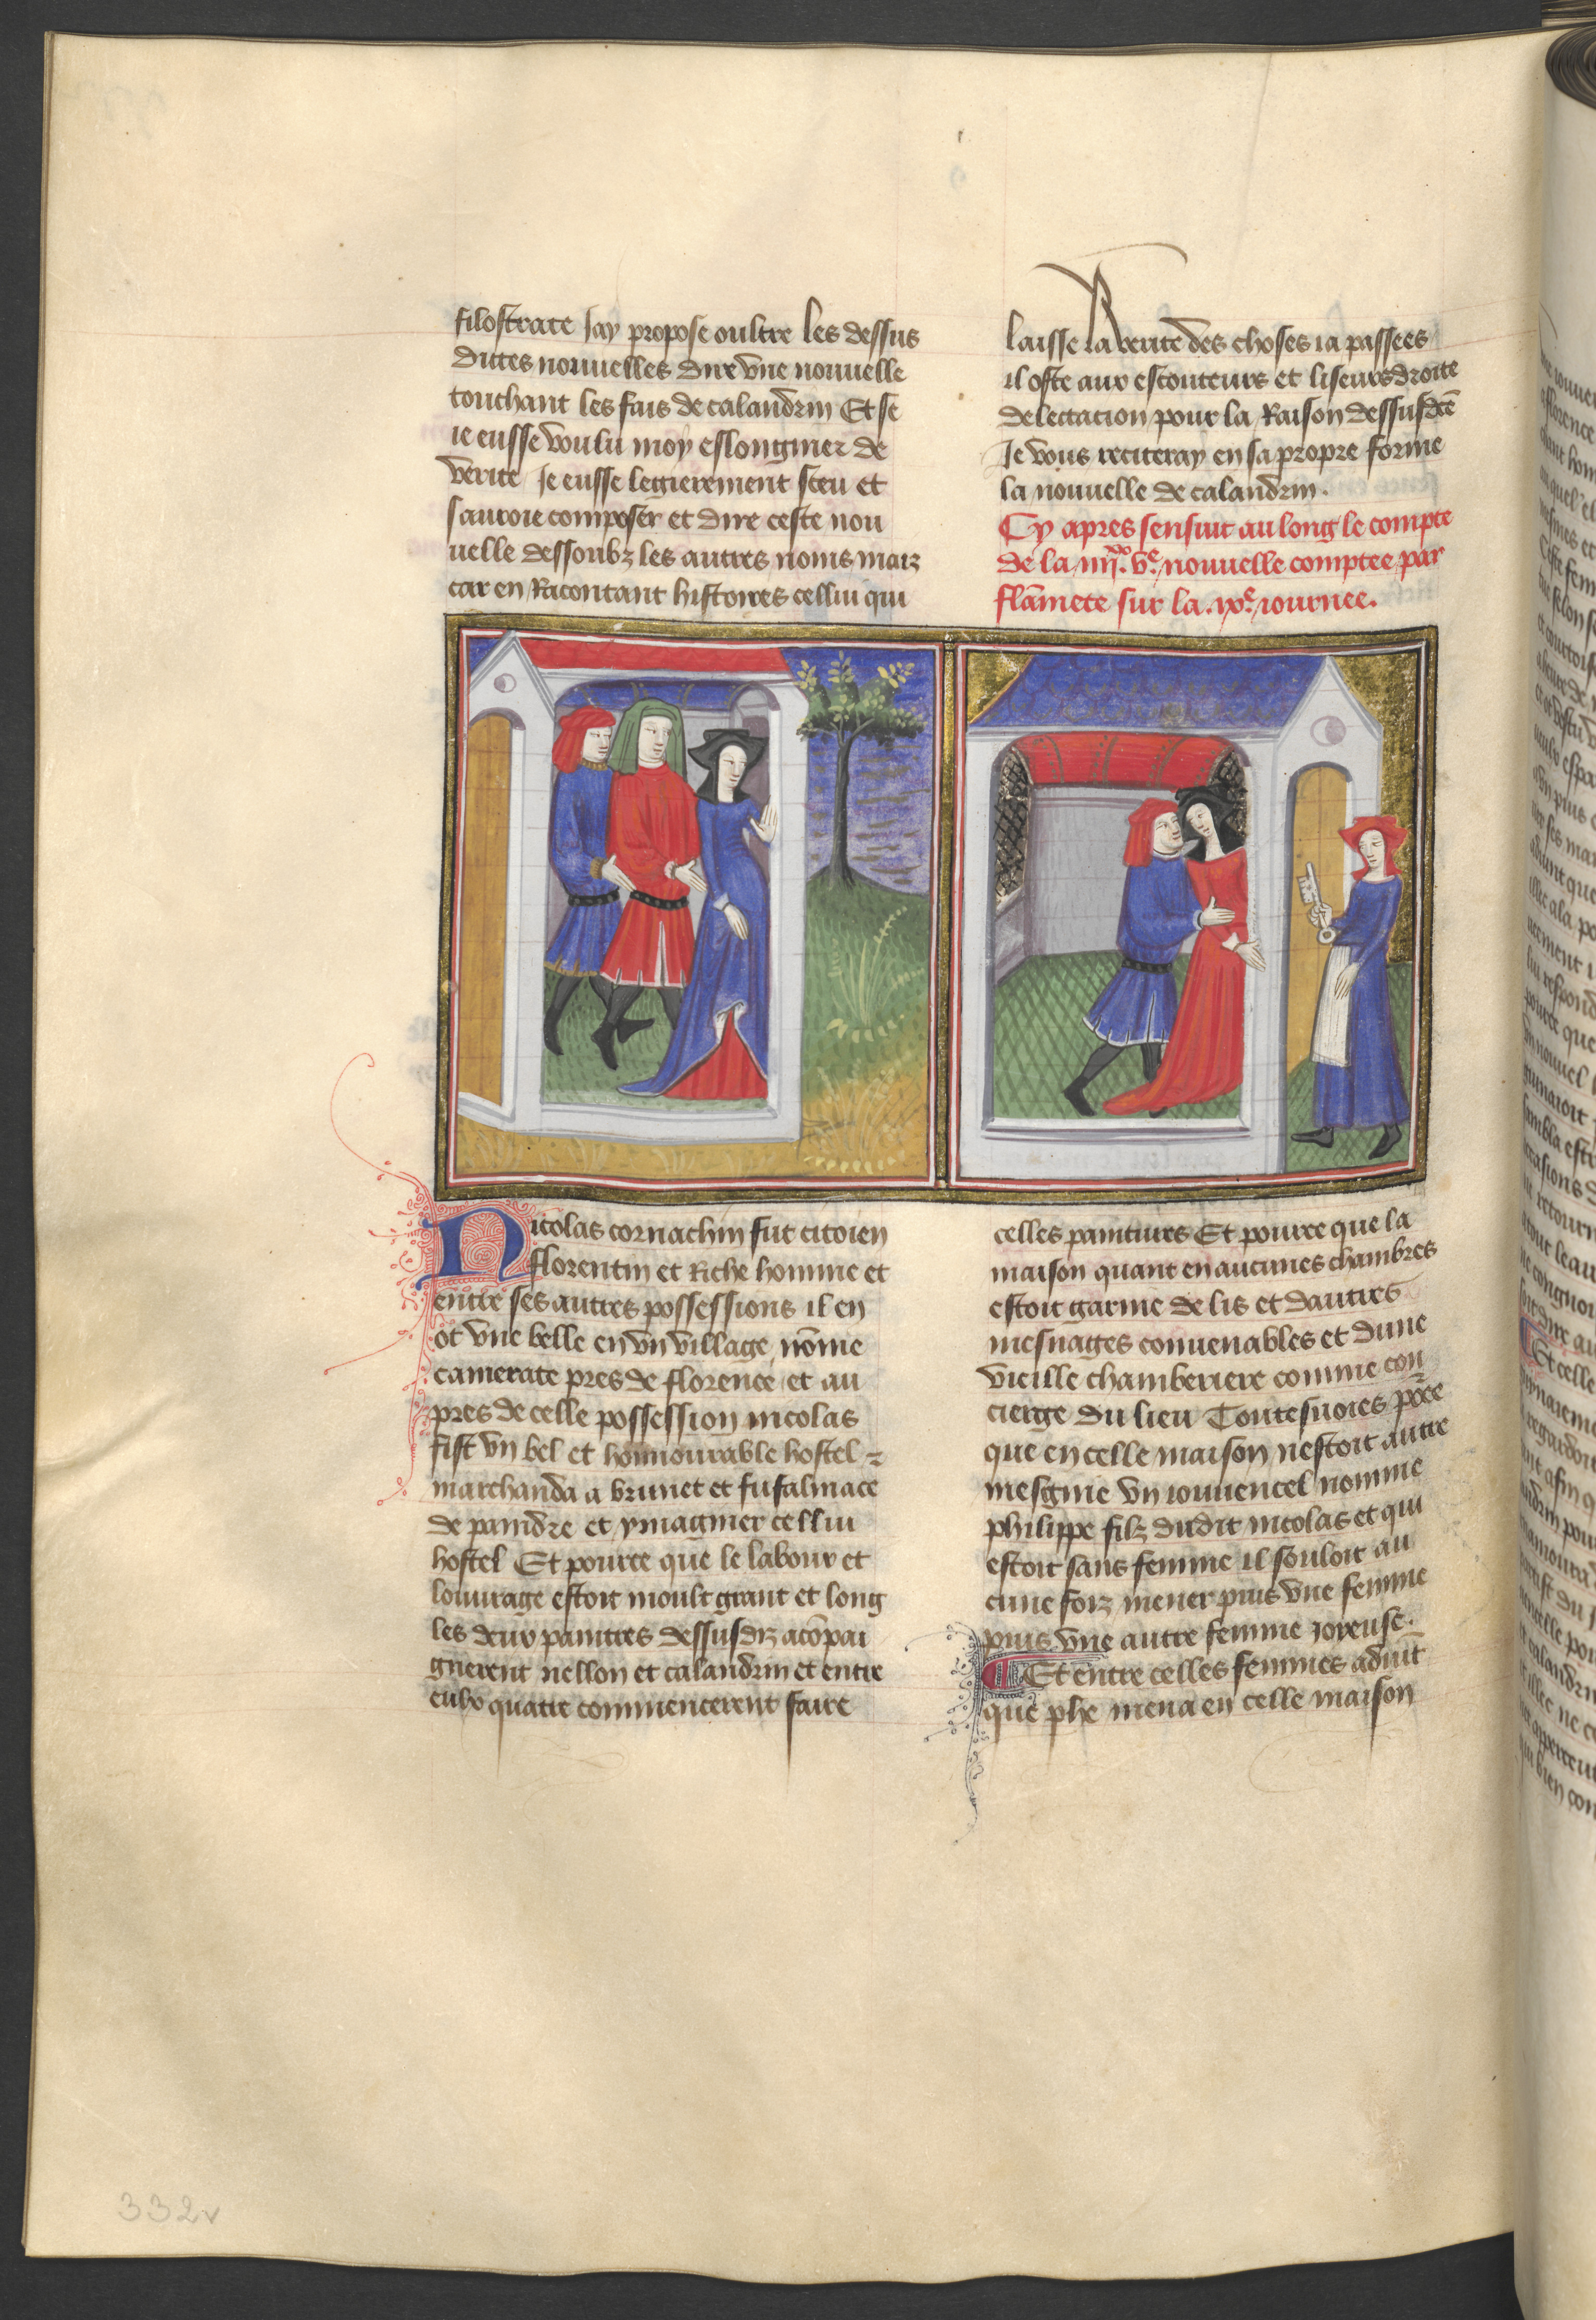 filostrate Jay propose oultre les dessus
dittes nouuelles dire vne nouuelle
touchant les fais de calandrin Et se
ie eusse voulu moy eslongnier de
verite Je eusse legierement sceu et
sauroie composer et dire ceste nou
uelle dessoubz les autres noms maiz
car en Racontant histoires cellui qui
laisse la verite des choses ia passees
il oste aux escouteurs et liseurs droite
delectacion pour la Raison dessusdce
Je vous reciteray en sa propre forme
la nouuelle de calandrin.
Cy apres sensuit au long le compte
de la iiijxx ve nouuelle comptee par
flamete sur la .ixe. iournee.
Nicolas cornachin fut citoien
florentin et Riche homme et
entre ses autres possessions il en
ot vne belle en vn village nome
camerate pres de florence et au
pres de celle possession nicolas
fist vn bel et honnourable hostel
marchanda a brunet et fufalmace
de paindre et ymaginer cellui
hostel Et pource que le labour et
louurage estoit moult grant et long
les deux paintres dessusdiz acompai
gnerent nellon et calandrin et entre
eulx quatre commencerent faire
celles paintures Et pource que la
maison quant en aucunes chambres
estoit garnie de lis et dautres
mesnages conuenables et dune
vieille chamberiere comme con
cierge du lieu Toutesuoies pource
que en celle maison nestoit autre
mesgnie vn iouuencel nomme
philippe filz dudit nicolas et qui
estoit sans femme il souloit au
cune foiz mener puis vne femme
puis vne autre femme ioyeuse.
Et entre celles femmes aduint
que phe mena en celle maison
332v